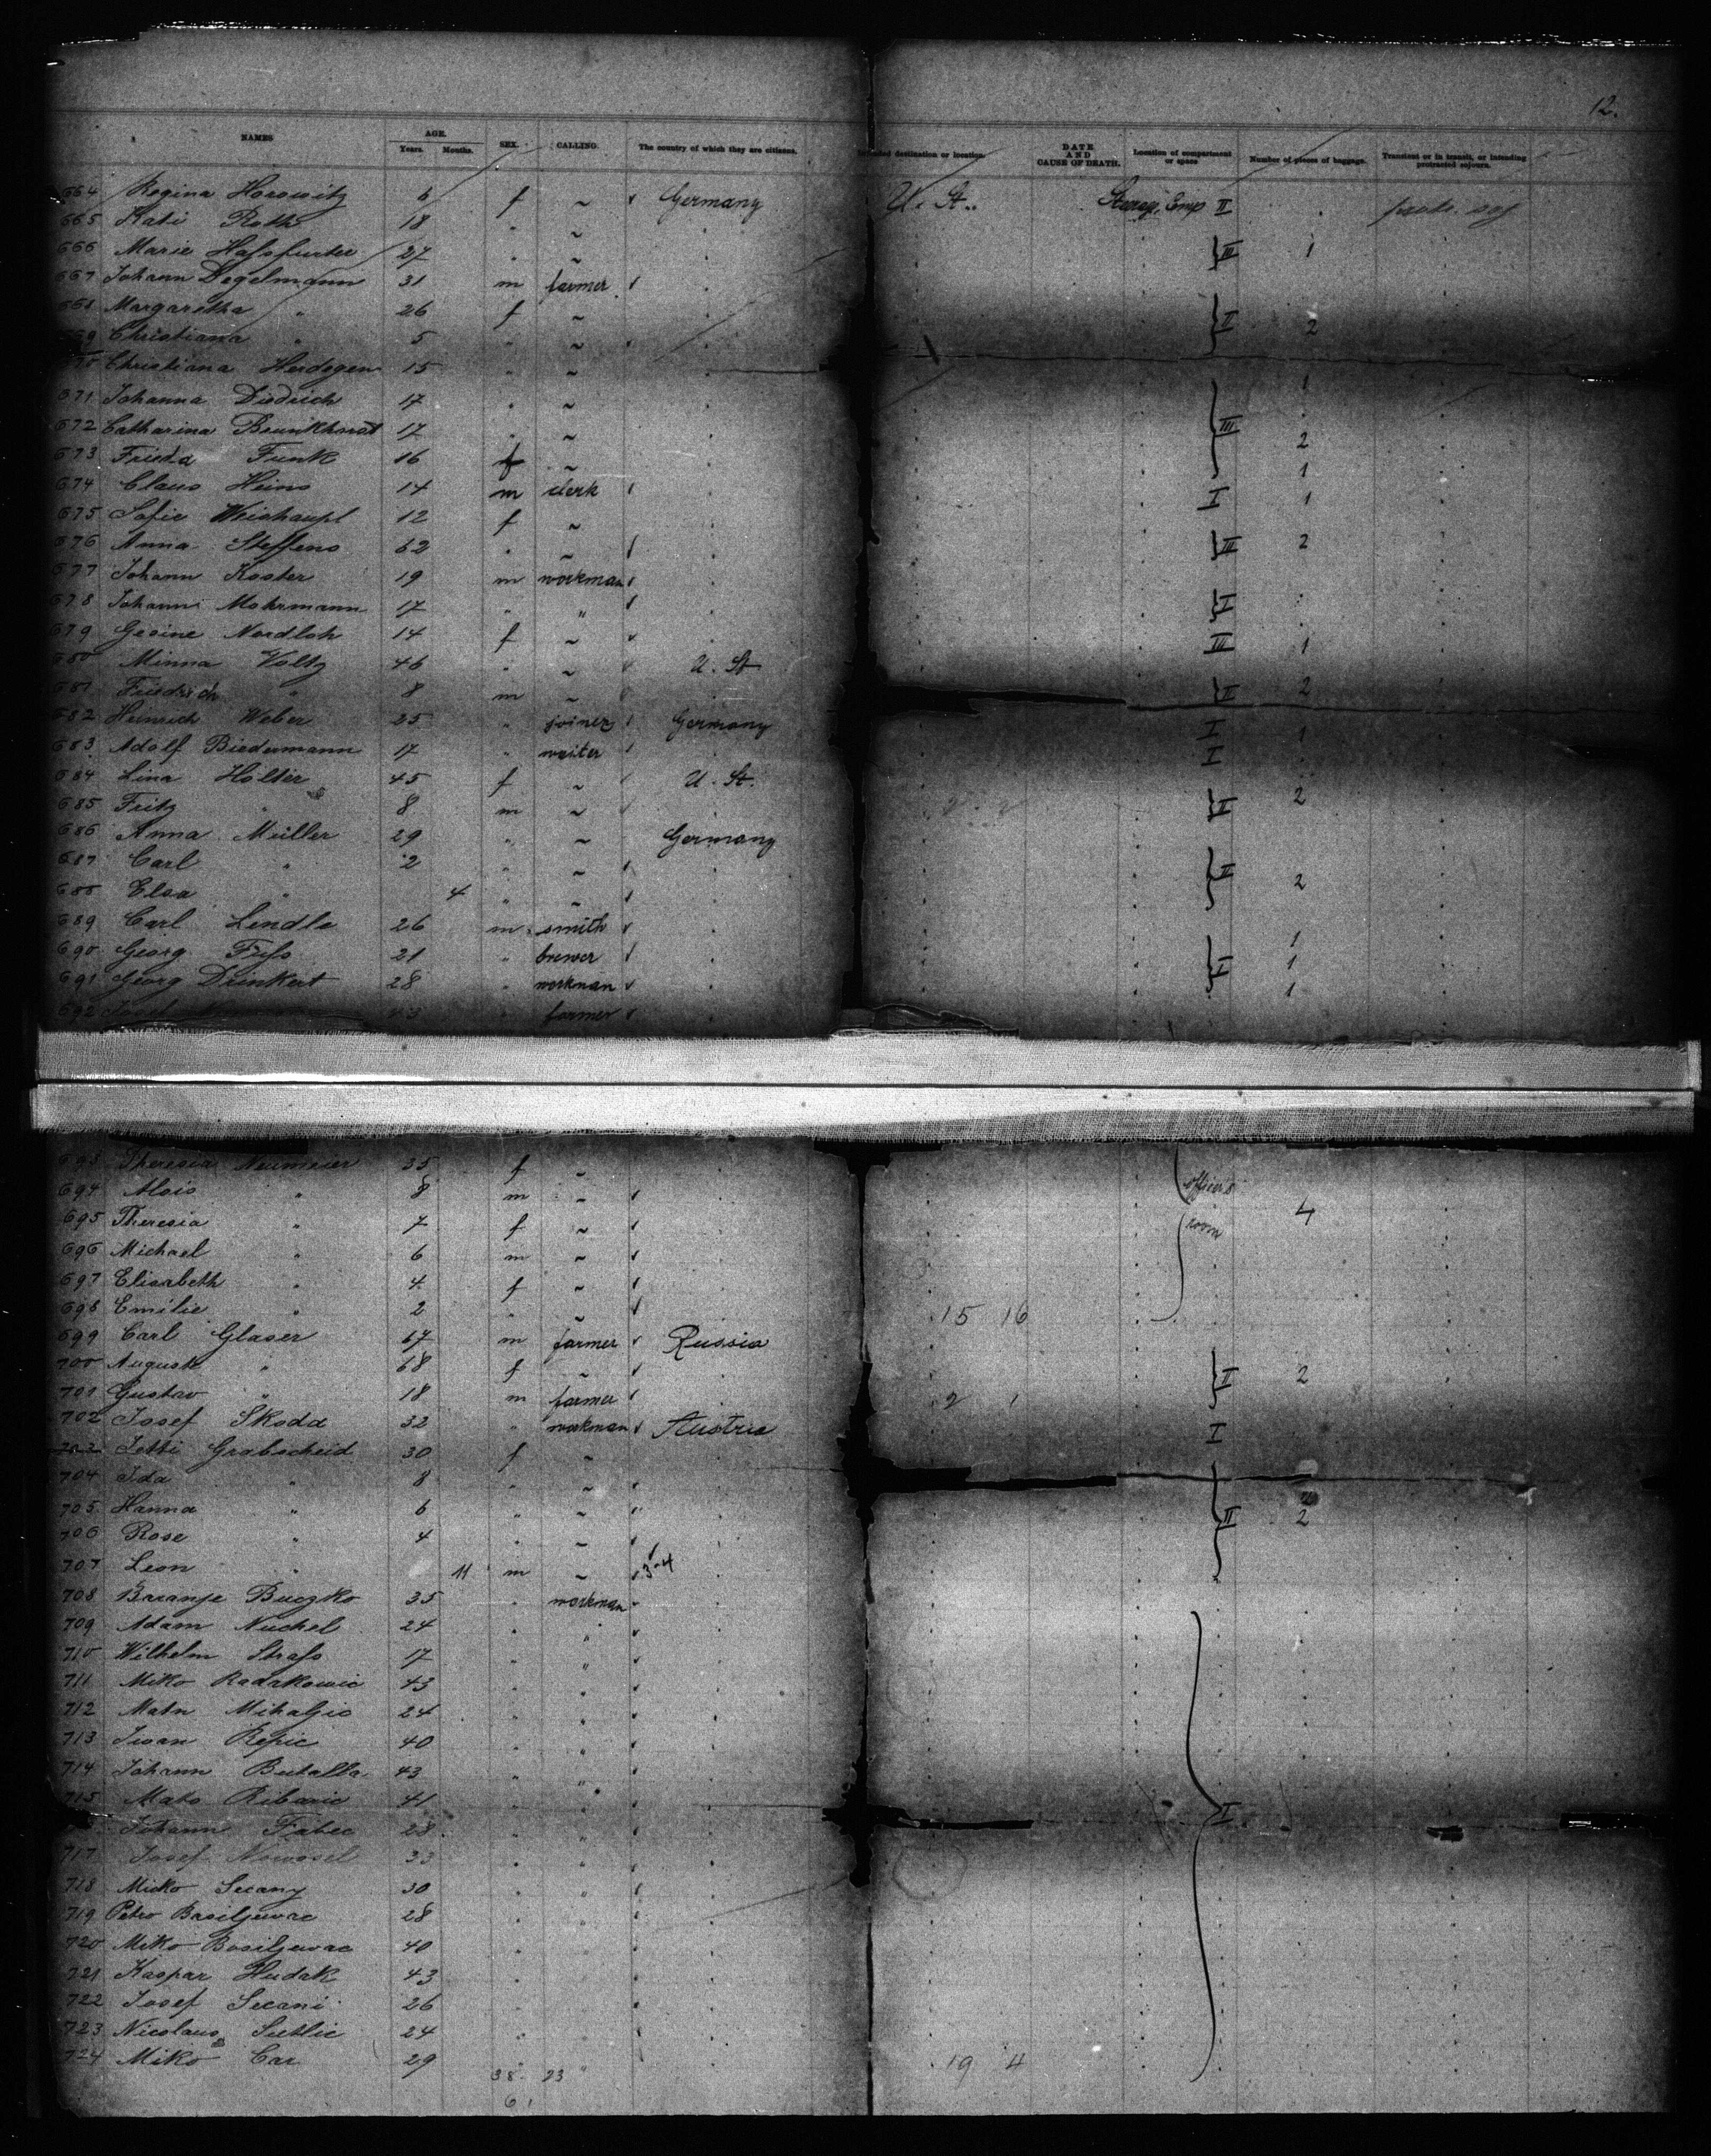 12.
NAMES AGE. Years. Months. SEX. CALLING. The country of which they are citizens. destination or location. DATE AND CAUSE OF DEATH. Location of compartment or space Number of pieces of baggage. Transient or in transit, or intending protracted sojourn.
664 Regina Horowitz 6 f ~ Germany U. St. Steerag. Comp II
665 Kati Roth 18 " ~
666 Marie Hafsfurter 27 " ~ III 1
667 Johann Degelmann 31 m farmer
668 Margaretha " 26 f ~ II 2
669 Christiana " 5 " ~
Christiana Herdegen 15 " ~
671 Johanna Diedrich 17 " ~ 1
672 Catharina Brunkhorst 17 " ~ III 2
673 Frieda Funk 16 f ~ 1
674 Claus Heins 14 m clerk I 1
675 Sofie Weishaupl 12 f ~
676 Anna Steffens 62 " ~ III 2
677 Johann Koster 19 m workman
678 Johann Mohrmann 17 " "
679 Gesine Nordloh 14 f ~ III 1
680 Minna Voltz 46 " ~ U. St
681 Friedrich " 8 m ~ II 2
682 Heinrich Weber 25 " joiner Germany I 1
683 Adolf Biedermann 17 " waiter I
684 Lina Holtier 45 f ~ U. St. 2
685 Fritz " 8 m ~ II
686 Anna Müller 29 " ~ Germany
687 Carl " 2 " ~ II
688 Elsa " 4 " ~ 2
689 Carl Lendle 26 m smith
690 Georg 21 " brewer 1
691 Georg Drinkert 28 " workman 1
692 Josef 43 " farmer
693 Theresia Neumeier 35 f ~ officers
694 Alois " 8 m ~ 4
695 Theresia " 7 f ~ room
696 Michael " 6 m ~
697 Elisabeth " 4 f ~
698 Emilie " 2 " ~ 15 16
699 Carl Glaser 67 m farmer Russia
700 August " 68 f ~ II 2
701 Gustav " 18 m farmer 2 1
702 Josef Skoda 32 " workman Austria I
Jetti Grabscheid 30 f ~
704 Ida " 8 " ~
705 Hanna " 6 " ~ II 2
706 Rose " 4 " ~
707 Leon " 11 m ~ 3-4
708 Baranje Buczko 35 " workman
709 Adam Nuchel 24 " "
710 Wilhelm Strafs 17 " "
711 Miko Radakowic 43 " "
712 Matn Mihaljio 24 " "
713 Iwan Repic 40 " "
714 Johann Butalla 43 " "
715 Mato Ribaric 41 " " I
Johann Fabec 28 " "
717 Josef Nowosel 33 " "
718 Micko Secany 30 " "
719 Petro Basiljewac 28 " "
720 Miko Bosiljewac 40 " "
721 Kaspar Hudak 43 " "
722 Josef Secani 26 " "
723 Nicolaus Sutlic 24 " "
724 Miko Car 29 " " 19 4
38 23
61